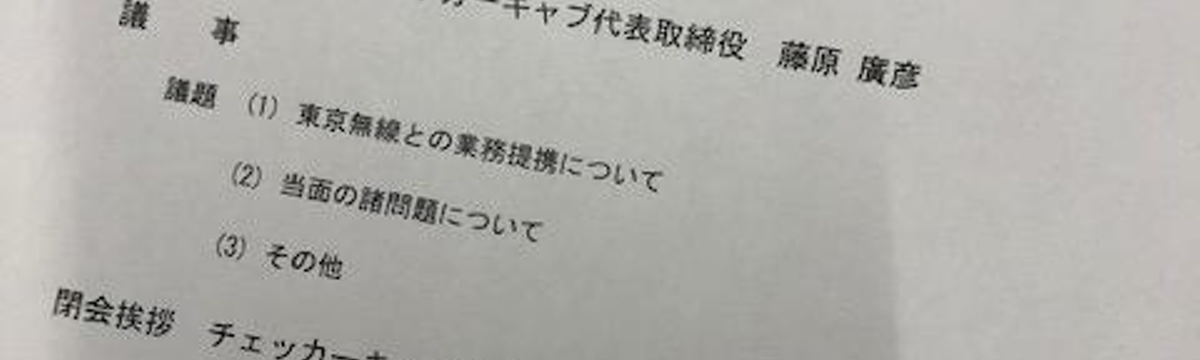 カーキャブ代表取締役 藤原 廣彦
議 事
議題 (1) 東京無線との業務提携について
(2) 当面の諸問題について
(3) その他
閉会挨拶 チェッカーキ